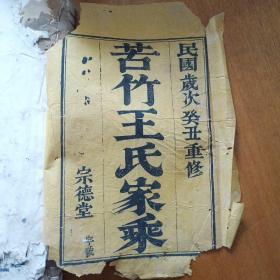 民國歲次癸丑重修
苦竹王氏家乘
宗德堂